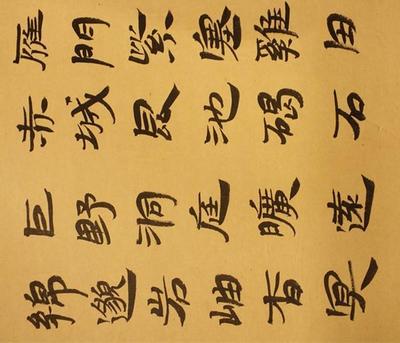 雁門紫塞雞田
赤城昆池碣石
巨野洞庭曠遠
綿邈岩岫杳冥